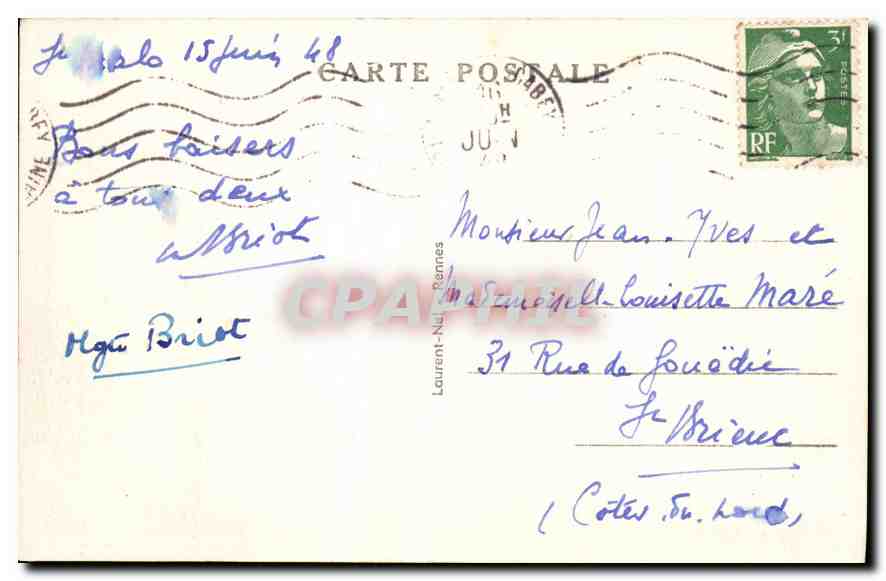 St Malo 15 juin 48
CARTE POSTALE
Bons baisers
à tous deux
Briot
Mgte Briot
Laurent-Nel Rennes
Monsieur Jean-Yves et
Mademoiselle Louisette Maré
31 Rue de Gouëdic
St Brieuc
(Côtes du Nord)
JUIN
3F
POSTES
RF
CPAPHIL